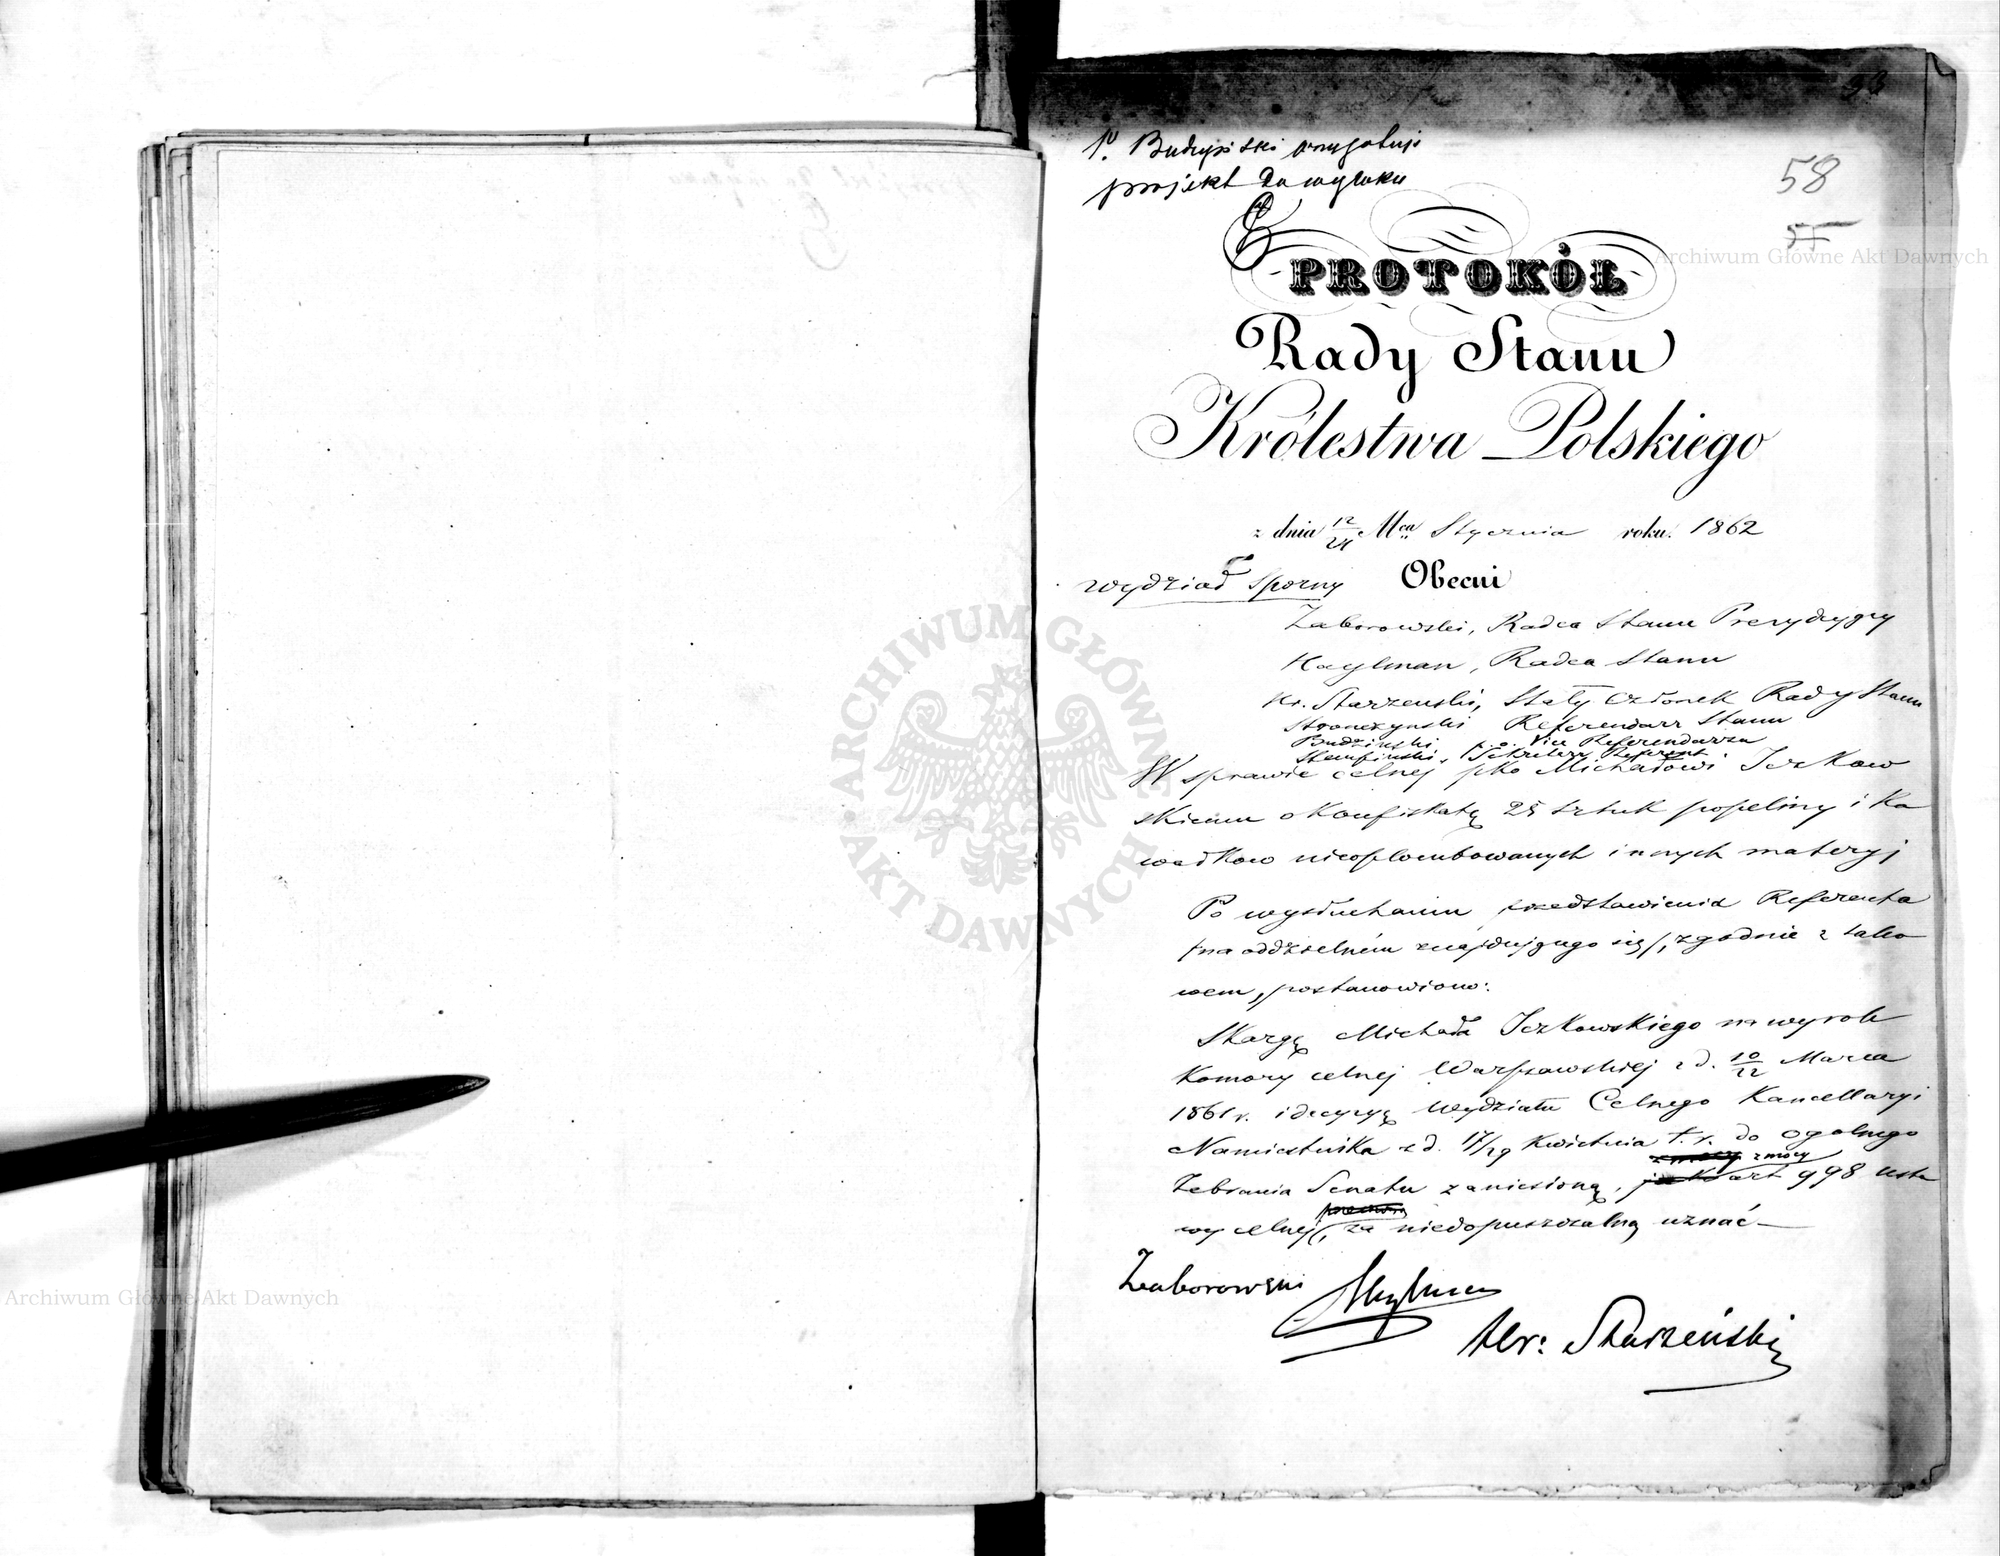 58
55
P. Budzyński przygotuje
projekt do wyroku
PROTOKÓŁ
Rady Stanu
Królestwa Polskiego
z dnia 12/24 Mca Stycznia roku 1862
Wydział Sporny Obecni
Zaborowski, Radca Stanu Prezydujący
Radca Stanu
Hr. Starzeński, Stały Członek Rady Stanu
Stronczyński Referendarz Stanu
Budziński, p.o. Vice Referendarza
Sekretarz Referent.
W sprawie celnej pko Michałowi Iczkow
skiemu o Konfiskatę 25 sztuk popeliny i Ka
wałkow nieoplombowanych innych materyj
Po wysłuchaniu przedstawienia Referenta
/na oddzielném znajdującego się/, zgodnie z tako
wem, postanowiono:
Skargę Michała Iczkowskiego na wyrok
Komory celnej Warszawskiej z d. 10/22 Marca
1861 r. i decyzyę Wydziału Celnego Kancellaryi
Namiestnika z d. 17/29 Kwietnia t. r. do ogolnego
z mocy
Zebrania Senatu zaniesioną, art 998 usta
wy celnej, za niedopuszczalną uznać —
Zaborowski
Hr: Starzeński
ARCHIWUM GŁÓWNE AKT DAWNYCH
Archiwum Główne Akt Dawnych
Archiwum Główne Akt Dawnych